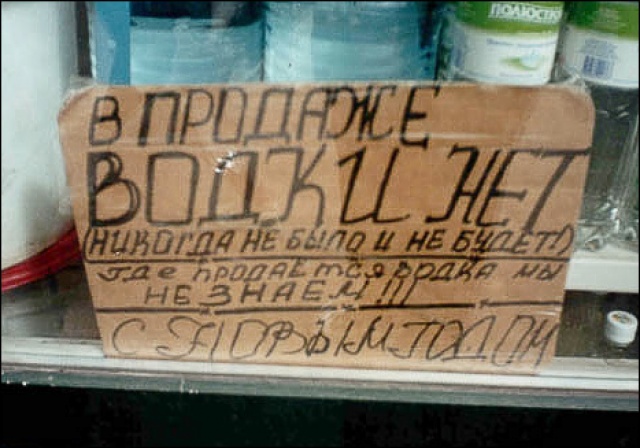 ПОЛЮСТРО
В ПРОДАЖЕ
ВОДКИ НЕТ
(НИКОГДА НЕ БЫЛО И НЕ БУДЕТ!)
где продаётся водка мы
НЕ ЗНАЕМ!!!
С НОВЫМ ГОДОМ